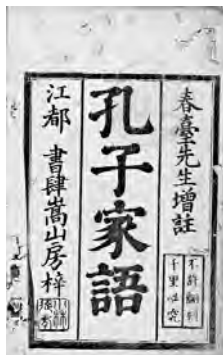 春臺先生增註
不許翻刻
千里必究
孔子家語
江都 書肆嵩山房梓